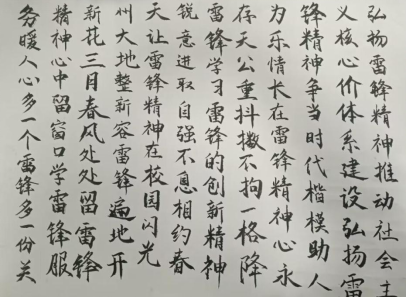 弘扬雷锋精神推动社会主
义核心价体系建设弘扬雷
锋精神争当时代楷模助人
为乐情长在雷锋精神心永
存天公重抖擞不拘一格降
雷锋学习雷锋的创新精神
锐意进取自强不息相约春
天让雷锋精神在校园闪光
州大地整新容雷锋遍地开
新花三月春风处处留雷锋
精神心中留窗口学雷锋服
务暖人心多一个雷锋多一份关